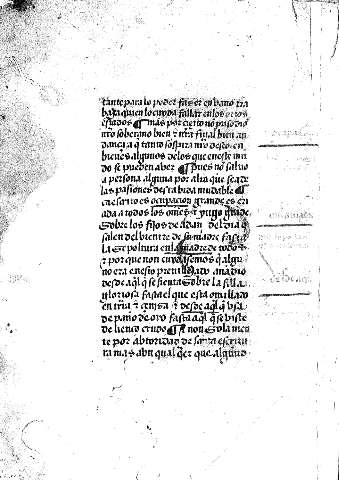 tante para lo poder fazer en vano tra
baja quien lo cuyda fallar en los otros
estados ¶ mas por cierto nõ pueo nio
nro soberano bien ⁊ nr̃a final bien an
dança a q̃ tanto sospira nro deseo en
bienes algunos delos que eneste mũ
do se pueden aber ¶ Pues nõ saluo
a persona alguna por alta que sea de
las pasiones desta vida mudable ¶
ca escrito es ocupacion grande es cri
ada a todos los omẽs ⁊ yugo graue
sobre los fijos de adan del dia q̃
salen del bientre de su madre fasta
la sepoltura en la madre de todos
⁊ por que non cuydasemos q̃ algu
no era enesto preuillejado anadio
desde aq̃l q̃ se sienta sobre la silla
gloriosa fasta el que esta omillado
en trr̃a ⁊ ceniza ⁊ desde aq̃l q̃ vsa
de paño de oro fasta aq̃l q̃ se viste
de lienço crudo ¶ E non sola men
te por abtoridad de santa escritu
ra mas avn qual q̃er que alguno